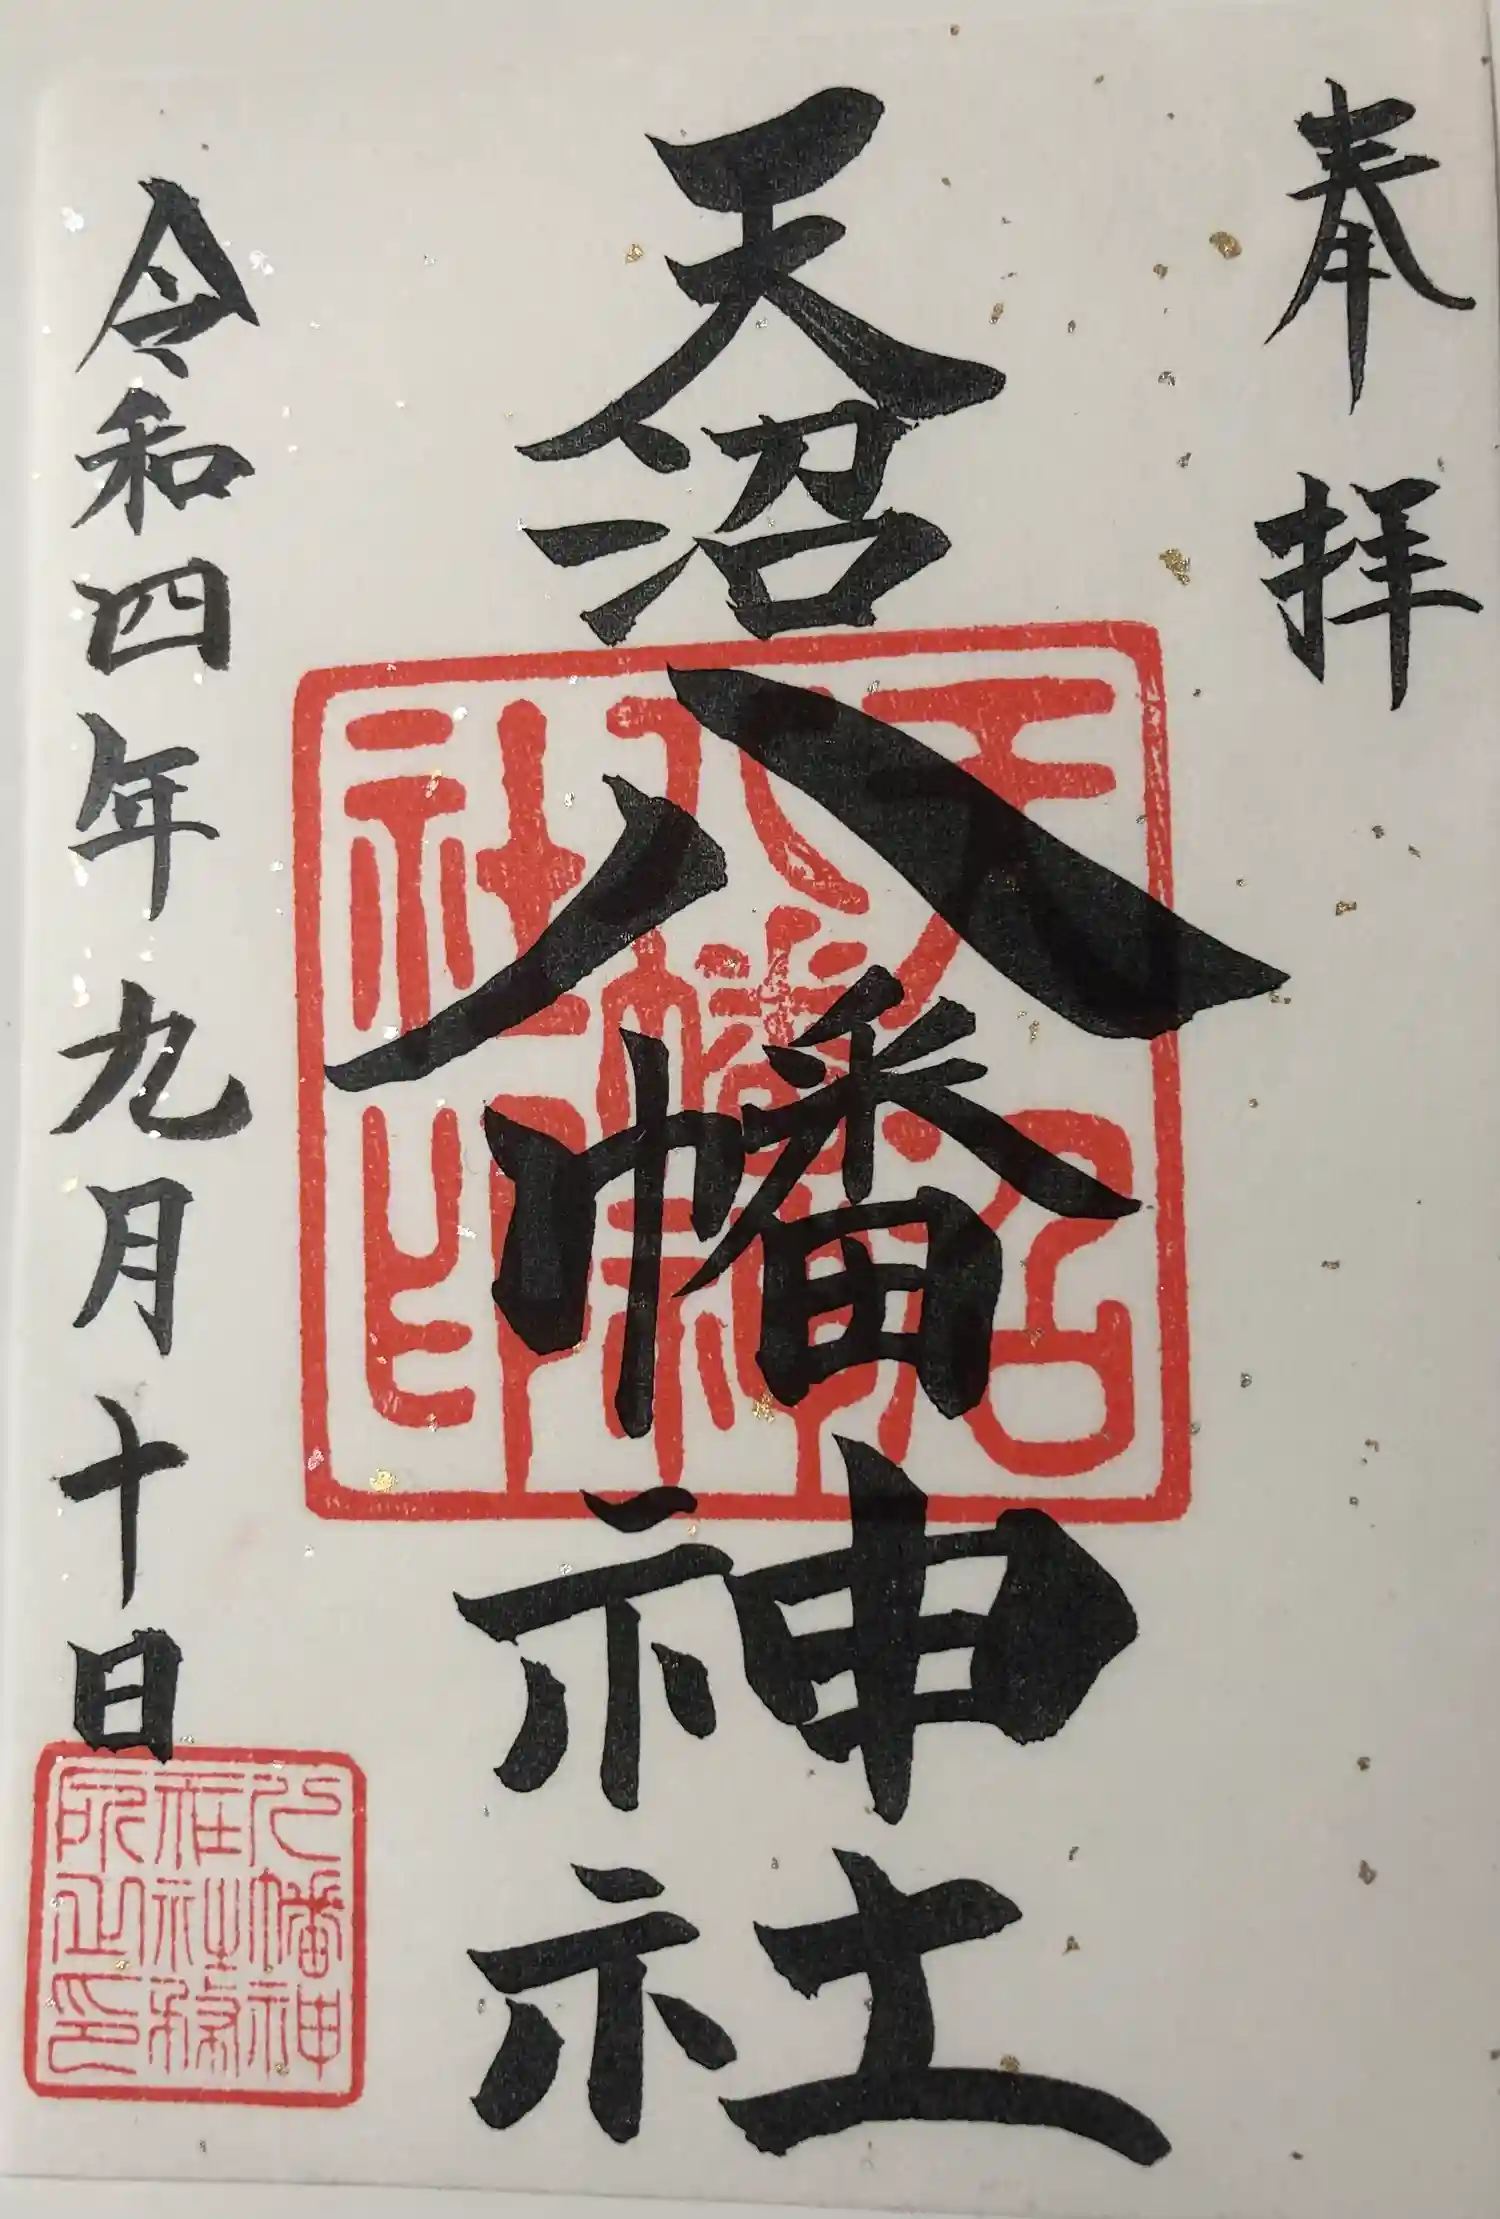 奉拝
天沼八幡神社
天沼八幡神社印
令和四年九月十日
八幡神社社務所之印